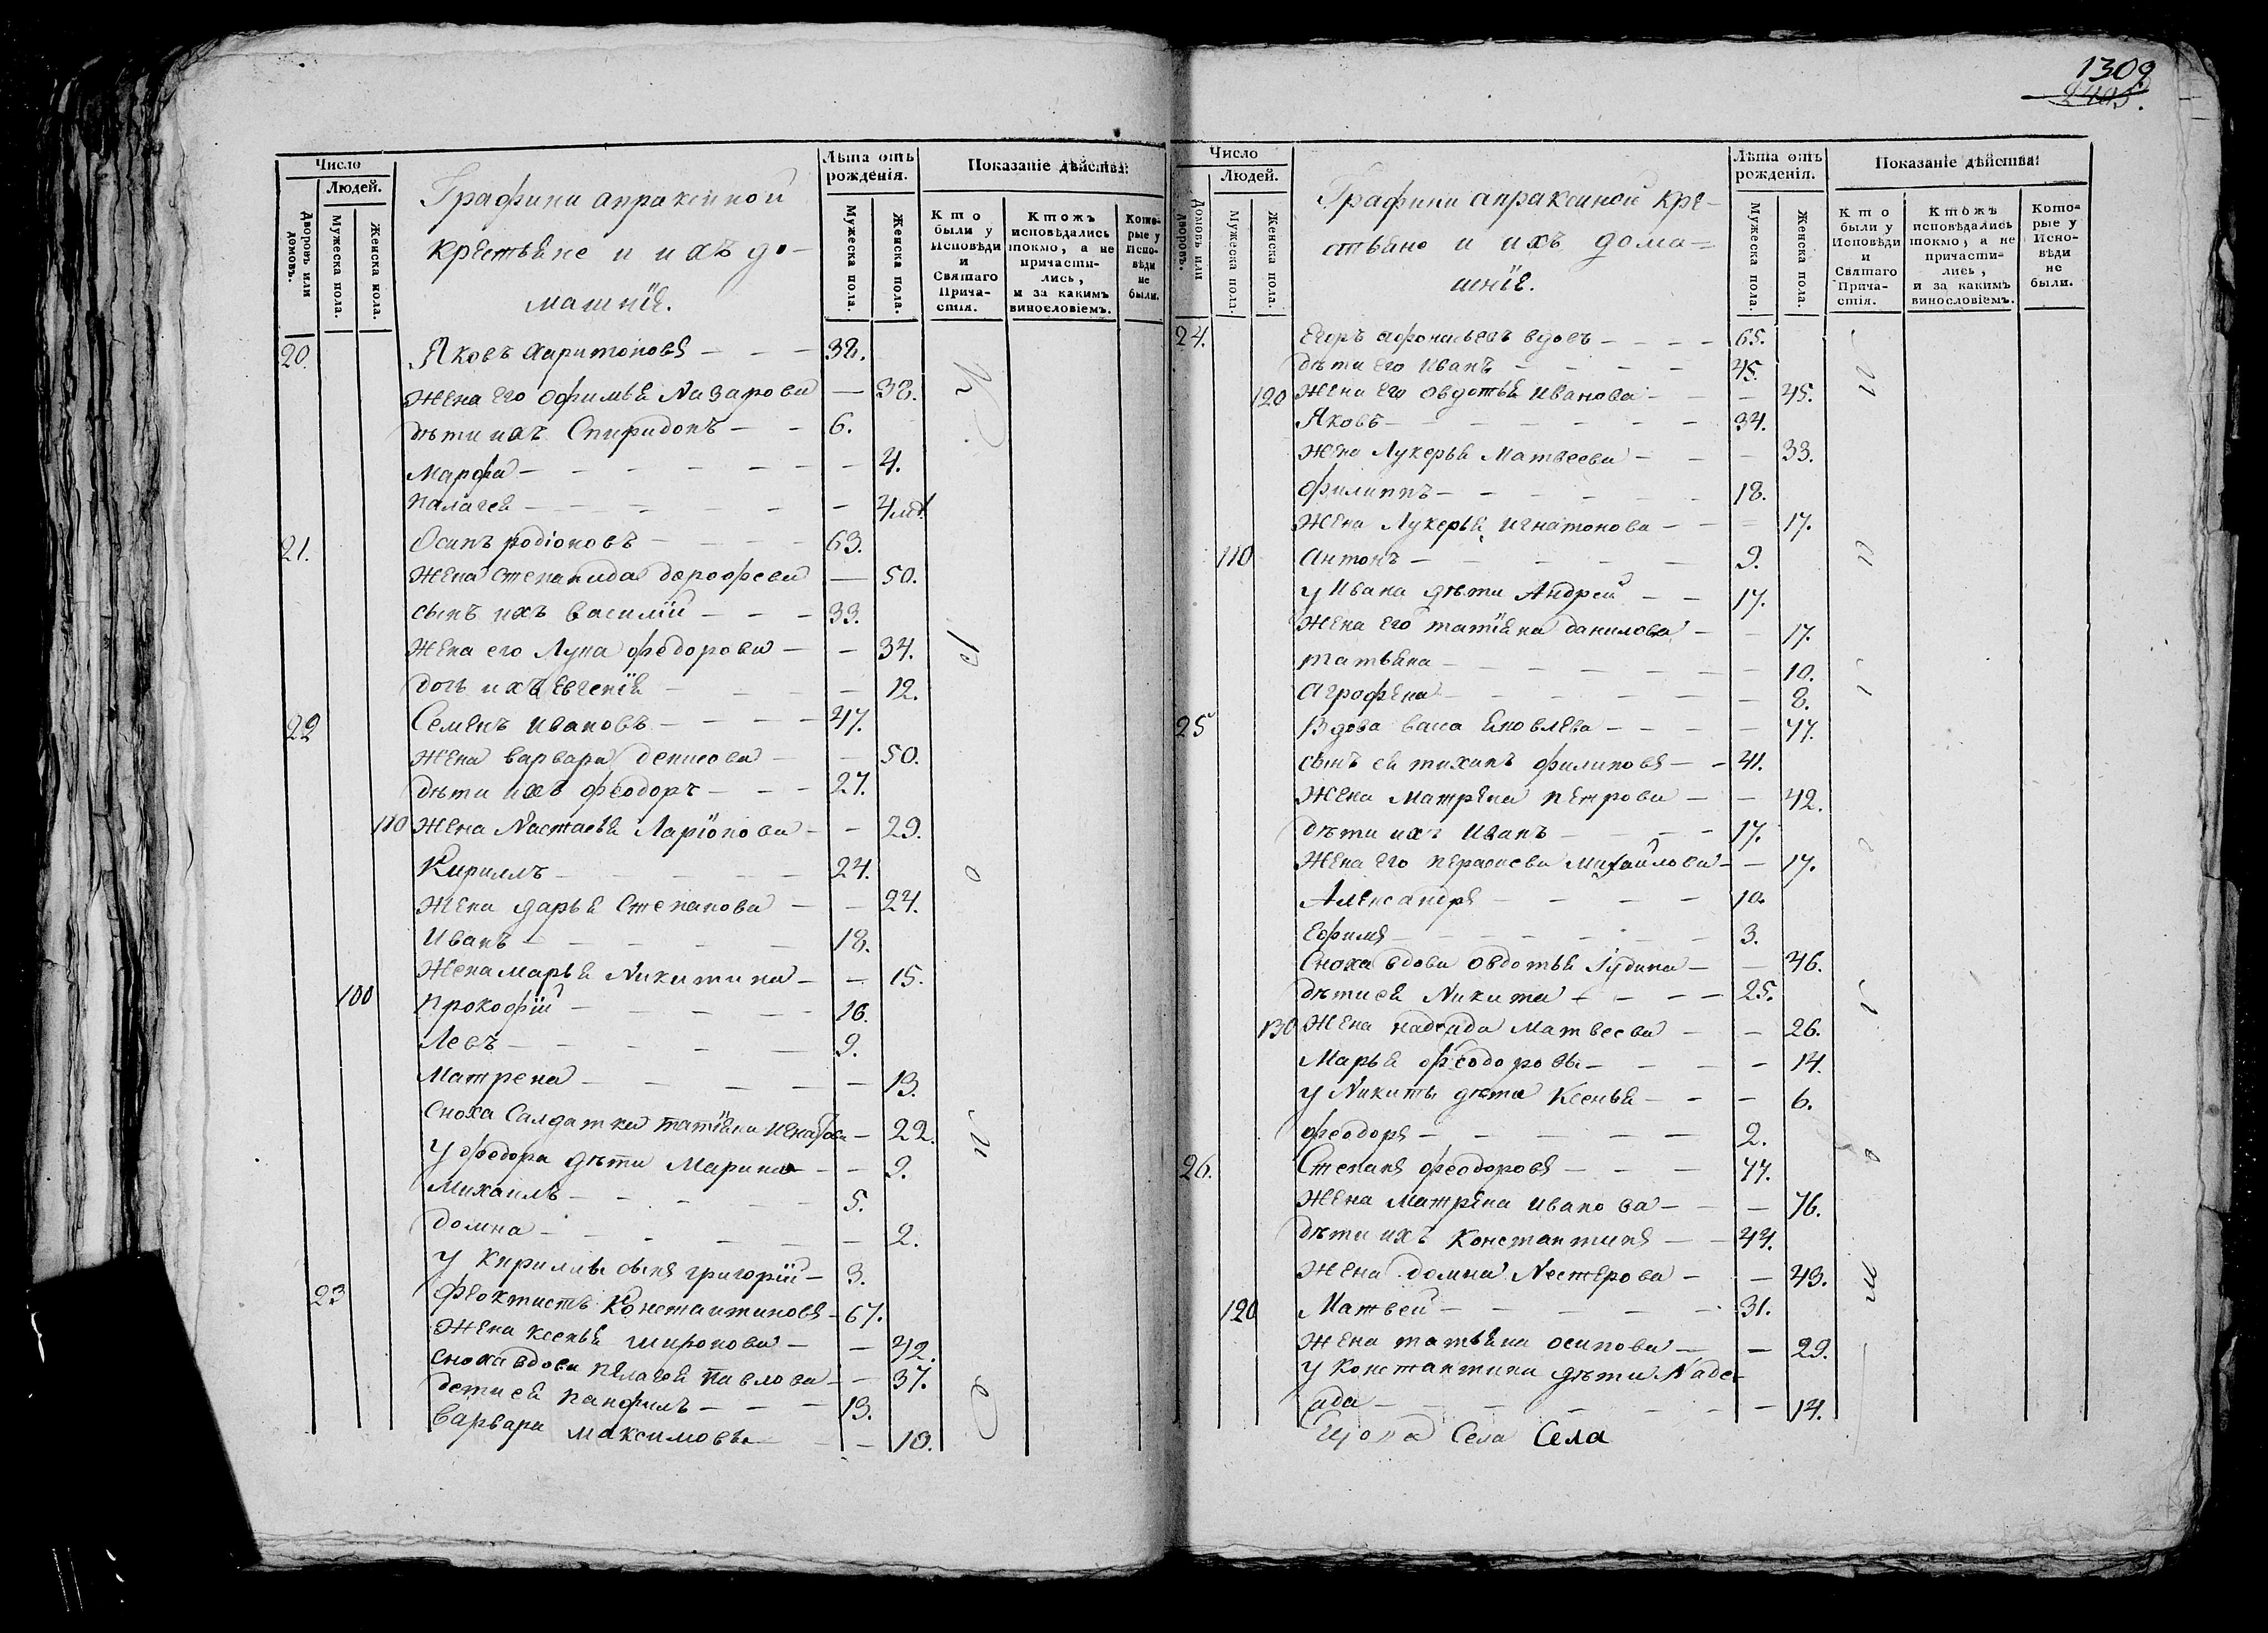 1309
2405.
Число
Людей.
Дворовъ или домовъ.
Мужеска пола.
Женска пола.
Графини апраксиной
крестьяне и ихъ до-
машнїе.
Лѣта отъ рожденія.
Мужеска пола.
Женска пола.
Показаніе дѣйства:
Кто были у Исповѣди и Святаго Причастія.
Ктожъ исповѣдались токмо, а не причастились, и за какимъ винословіемъ.
Которые у Исповѣди не были.
20. Яковъ харитоновъ — — — 38.
жена его офимья Назарова — 38.
дѣти ихъ Спиридонъ — — 6.
марфа — — — 4.
палагея — — —
21. Осипъ родіоновъ — — — 63.
жена степанида дорофеева — 50.
сынъ ихъ василїй — — — 33.
жена его Лупа федорова — — 34.
дочь ихъ евгенїя — — 12.
22 Семенъ ивановъ — — — 47.
жена варвара денисова — — 50.
дѣти ихъ феодоръ — — — 27.
110 жена Настасья Ларїонова — — 29.
Кирилъ — — — 24.
жена дарья степанова — — 24.
иванъ — — — 18.
жена марья Никитина — — 15.
100 прокофїй — — — 16.
Левъ — — — 9.
матрена — — — 13.
сноха салдатка татїана — 22.
у федора дѣти марина — — 9.
михаилъ — — — 5.
домна — — — 2.
у кирилы сынъ григорїй — 3.
23 феоктистъ Константиновъ — 67.
жена ксенья миронова — — 42.
сноха вдова пелагея павлова — — 37.
дети ея панфилъ — — — 13.
варвара максимовы — — 10.
Число
Людей.
Домовъ или дворовъ.
Мужеска пола.
Женска пола.
Графини апраксиной кре-
стьяне и ихъ дома=
шнїе.
Лѣта отъ рожденія.
Мужеска пола.
Женска пола.
Показаніе дѣйства:
Кто были у Исповѣди и Святаго Причастія.
Ктожъ исповѣдались токмо, а не причастились, и за какимъ винословіемъ.
Которые у Исповѣди не были.
24. егоръ афонасьевъ вдовъ — — — 65.
дѣти его иванъ — — — 45.
120 жена его овдотья иванова — — 45.
Яковъ — — — 34.
жена Лукерья матвеева — — 33.
филиппъ — — — 18.
жена Лукерья игнатонова — — 17.
110 антонъ — — — 9.
у ивана дѣти Андрей — — 17.
жена его татїяна данилова — — 17.
татьяна — — — 10.
агрофена — — — 8.
25 вдова васса яковлева — — — 77.
сынъ ея тихинъ филиповъ — — 41.
жена матрена петрова — — 42.
дѣти ихъ иванъ — — — 17.
жена его перасковья михаилова — — 17.
Александръ — — — 10.
ефимъ — — — 3.
сноха вдова овдотья Іудина — — 46.
дѣти ея Никита — — — 25.
130 жена надежда матвеева — — 26.
марья феодоровы — — — 14.
у Никиты дѣти ксенья — — 6.
феодоръ — — — 2.
26. Степанъ феодоровъ — — — 77.
жена матрена иванова — — 76.
дѣти ихъ константинъ — — 44.
жена домна Нестерова — — 43.
120 Матвей — — — 31.
жена татьяна осипова — — 29.
у константина дѣти Наде-
жда — — — 14.
Села Села